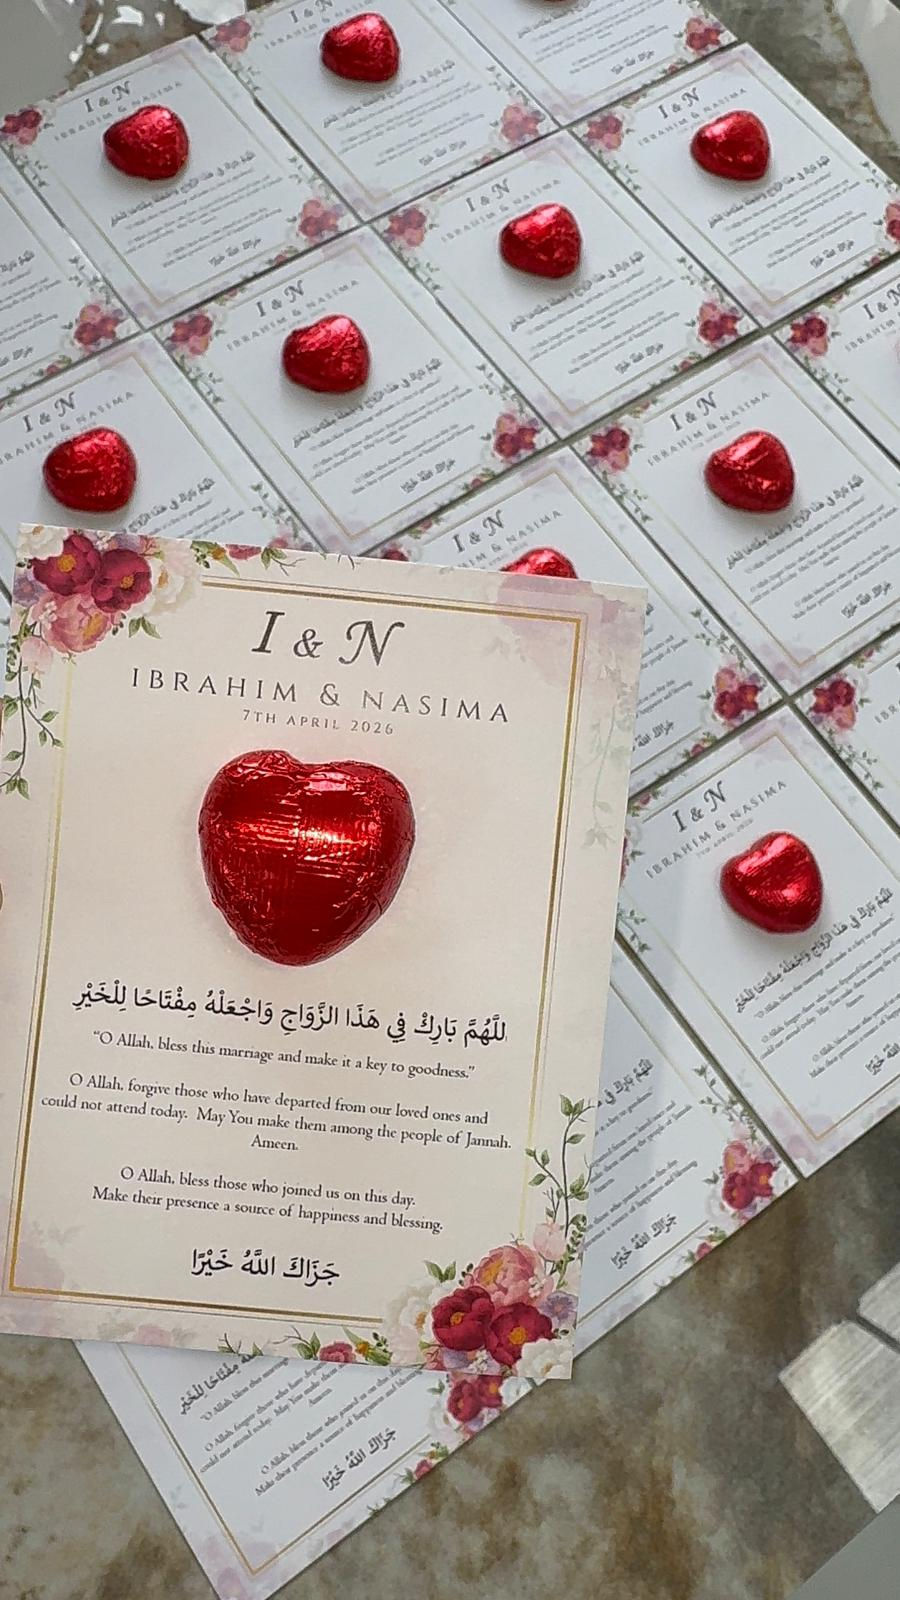 I & N
IBRAHIM & NASIMA
7TH APRIL 2026
للَّهُمَّ بَارِكْ فِي هَذَا الزَّوَاجِ وَاجْعَلْهُ مِفْتَاحًا لِلْخَيْرِ
“O Allah, bless this marriage and make it a key to goodness.”
O Allah, forgive those who have departed from our loved ones and
could not attend today. May You make them among the people of Jannah.
Ameen.
O Allah, bless those who joined us on this day.
Make their presence a source of happiness and blessing.
جَزَاكَ اللَّهُ خَيْرًا